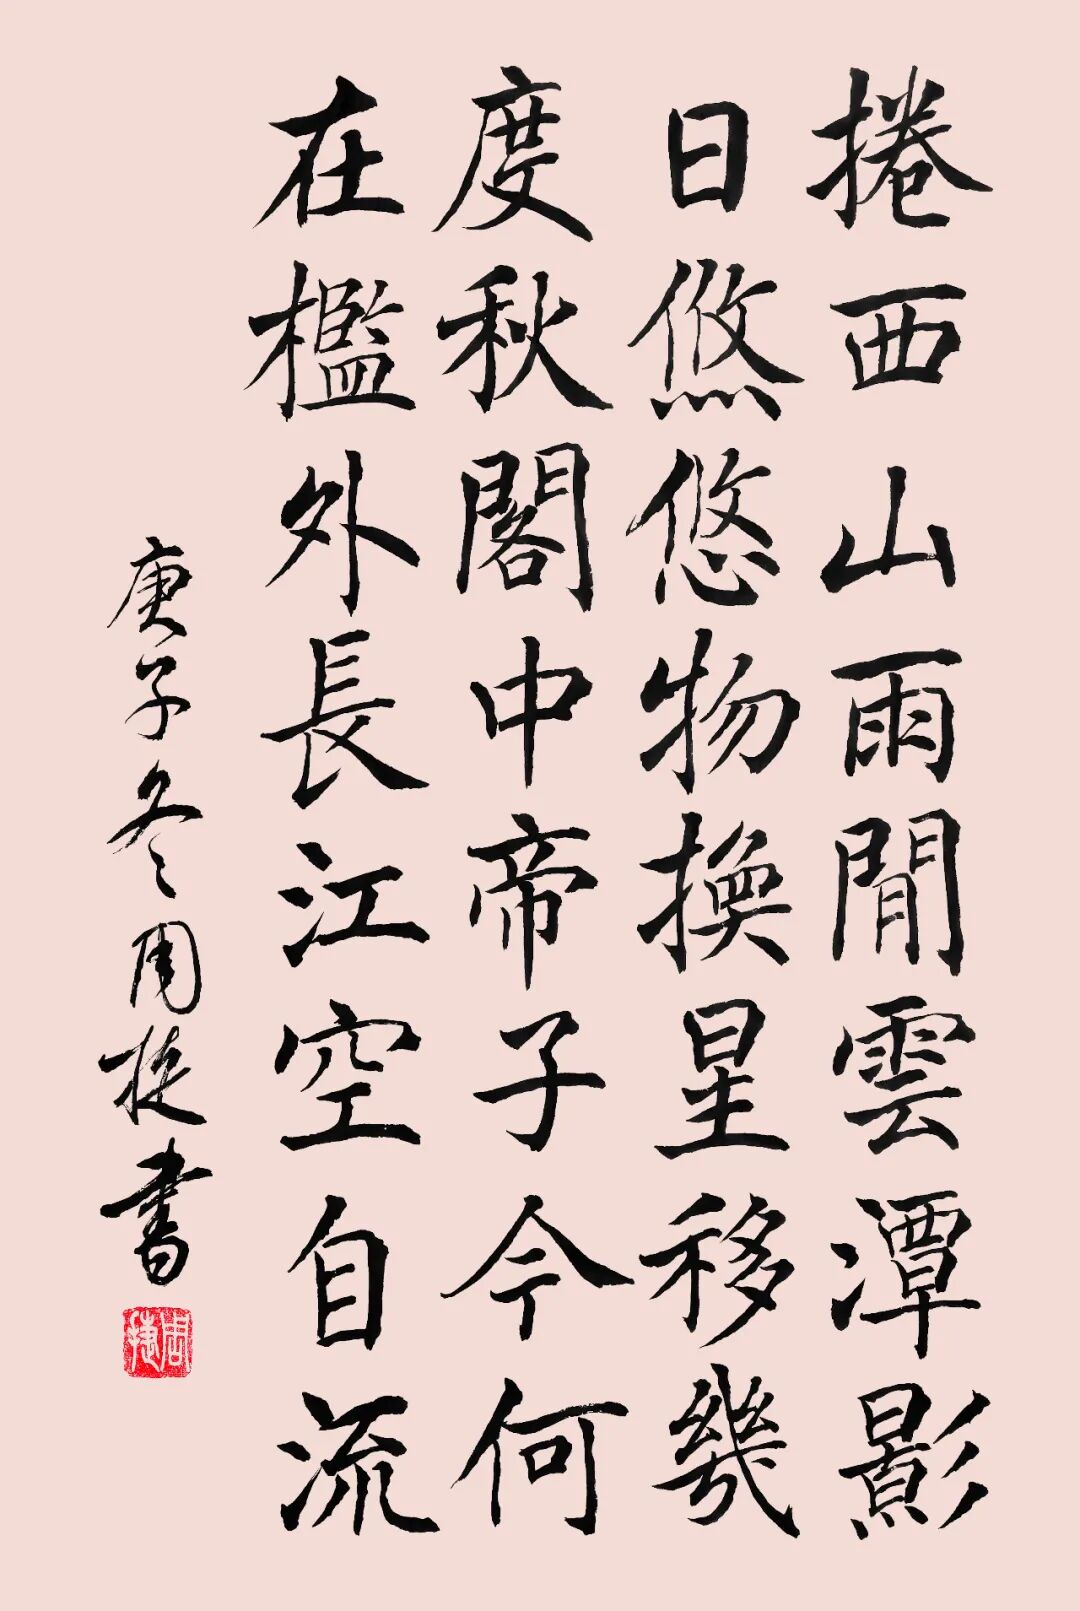 捲西山雨閒雲潭影
日悠悠物換星移幾
度秋閣中帝子今何
在檻外長江空自流
庚子冬周捷書
周捷